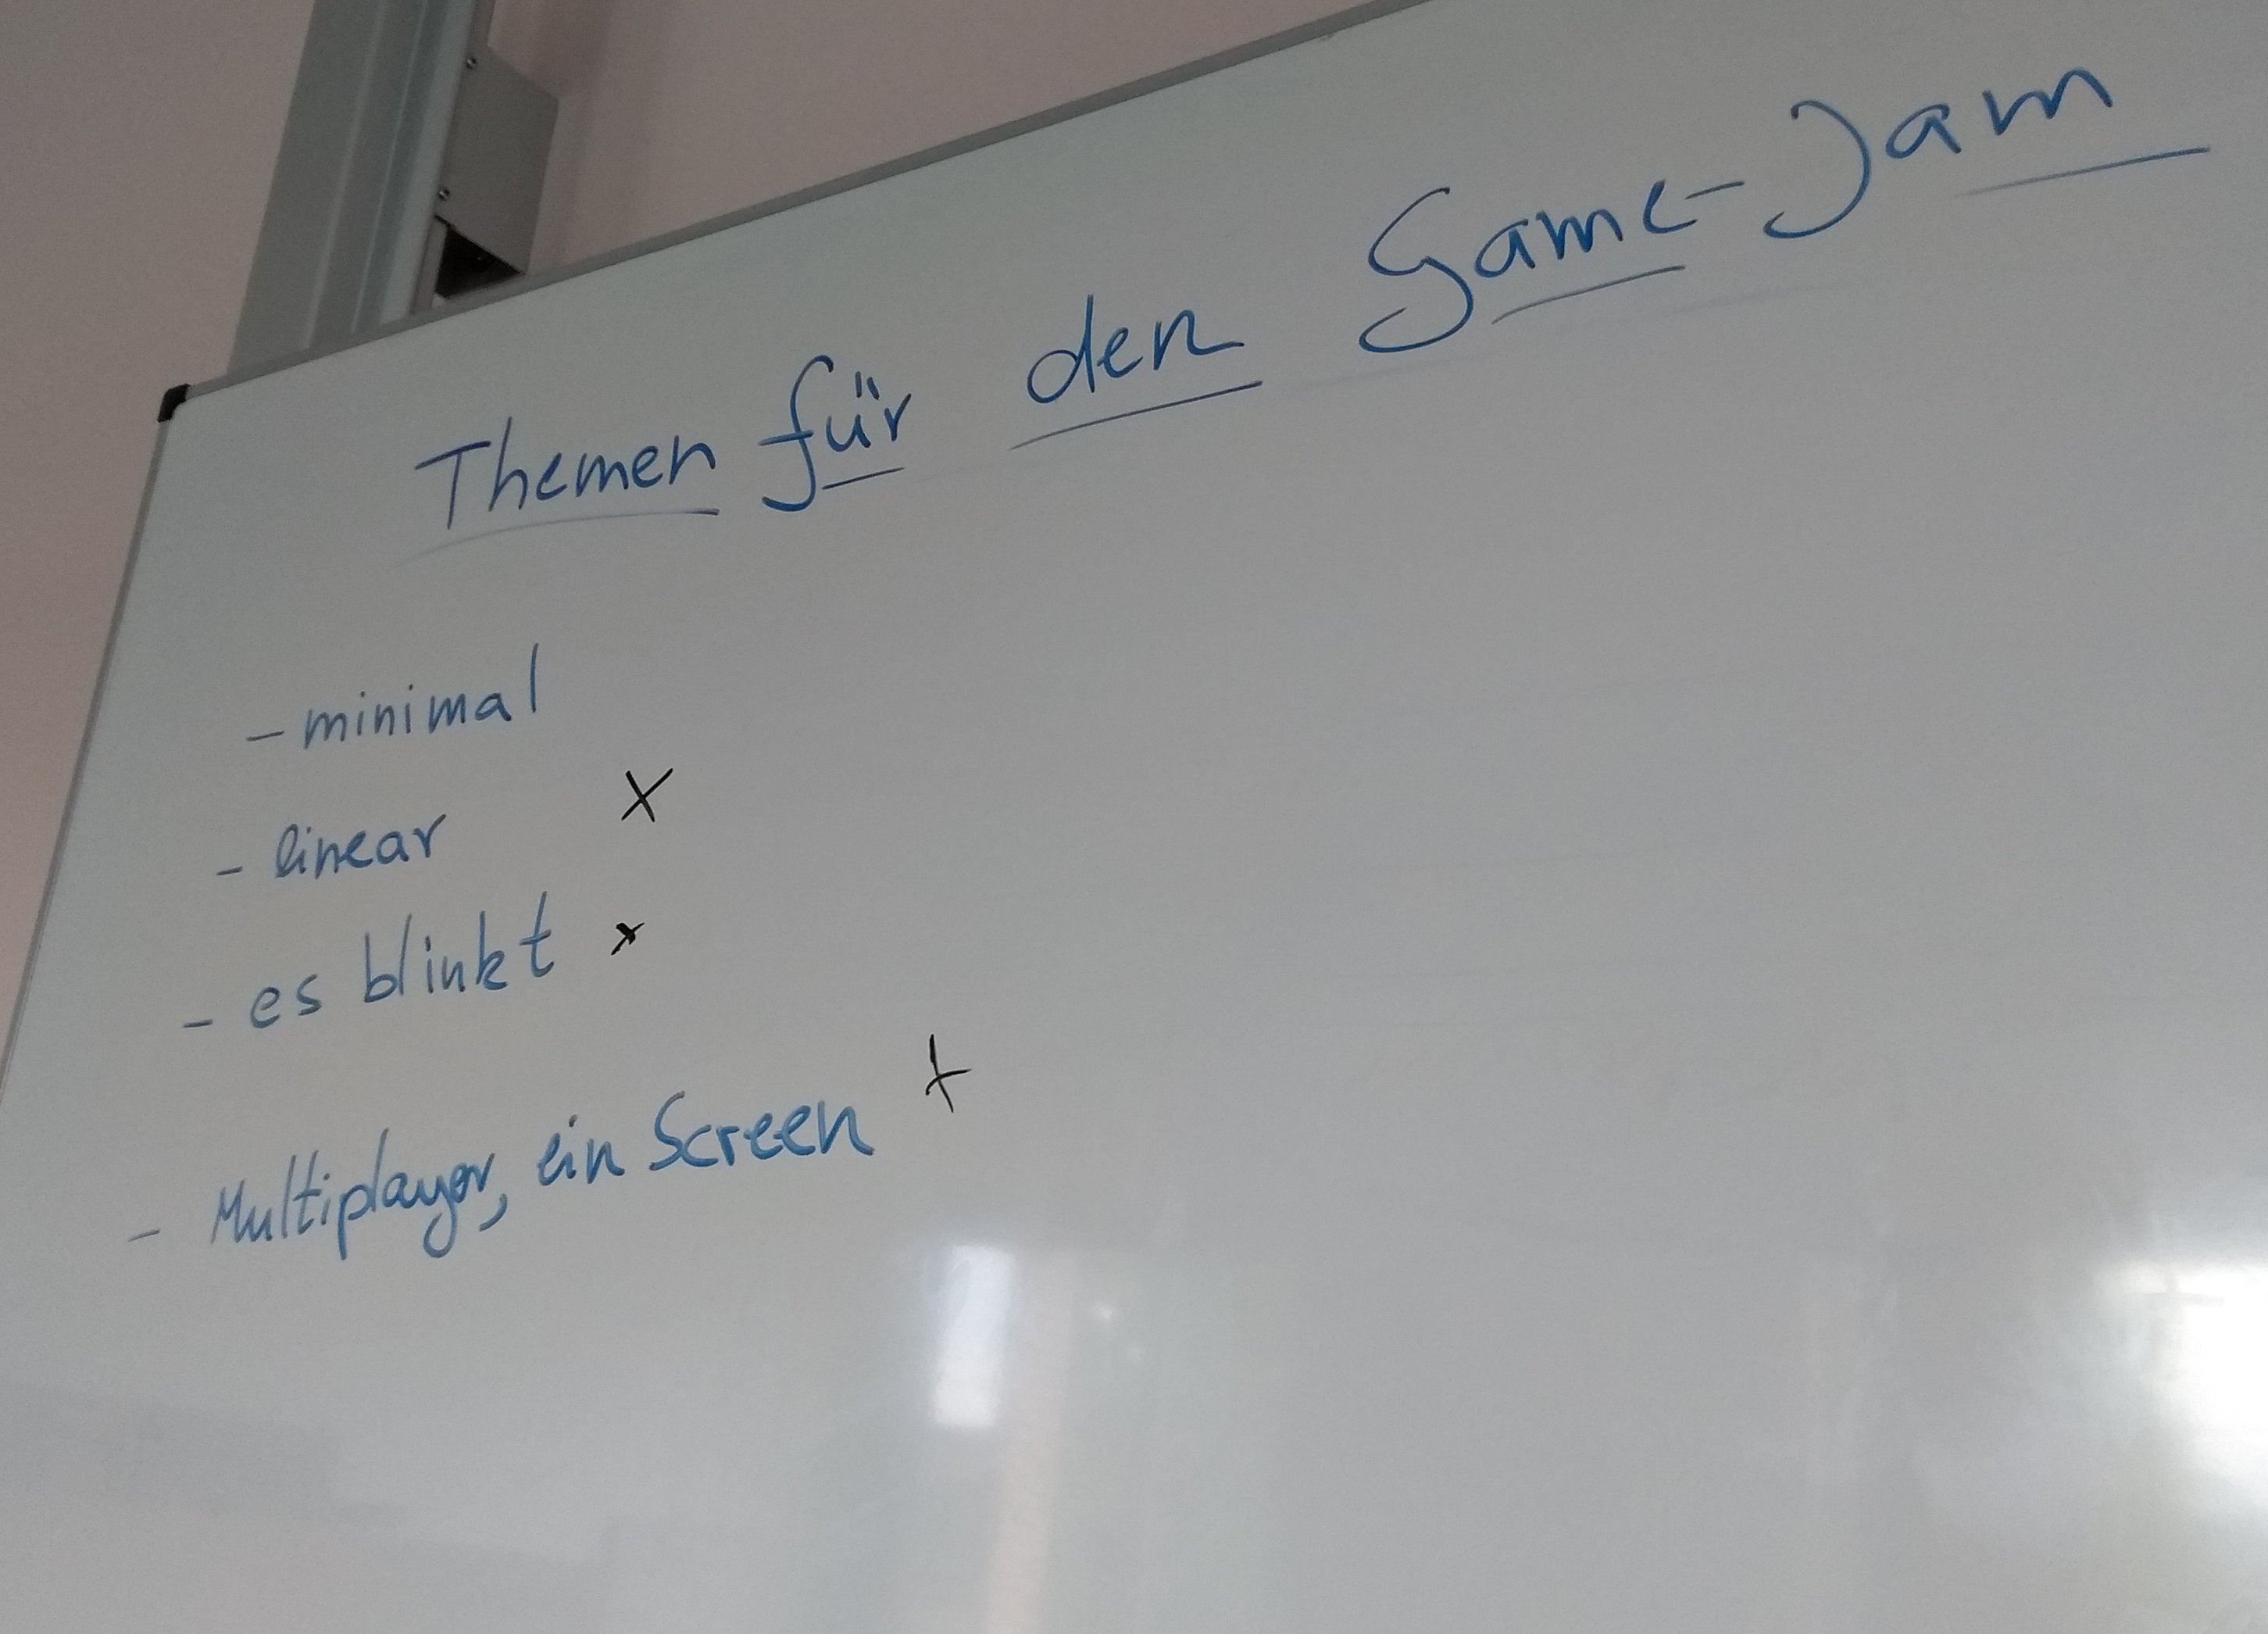 Themen für den Game-Jam
- minimal
- linear x
- es blinkt x
- Multiplayer, ein Screen x